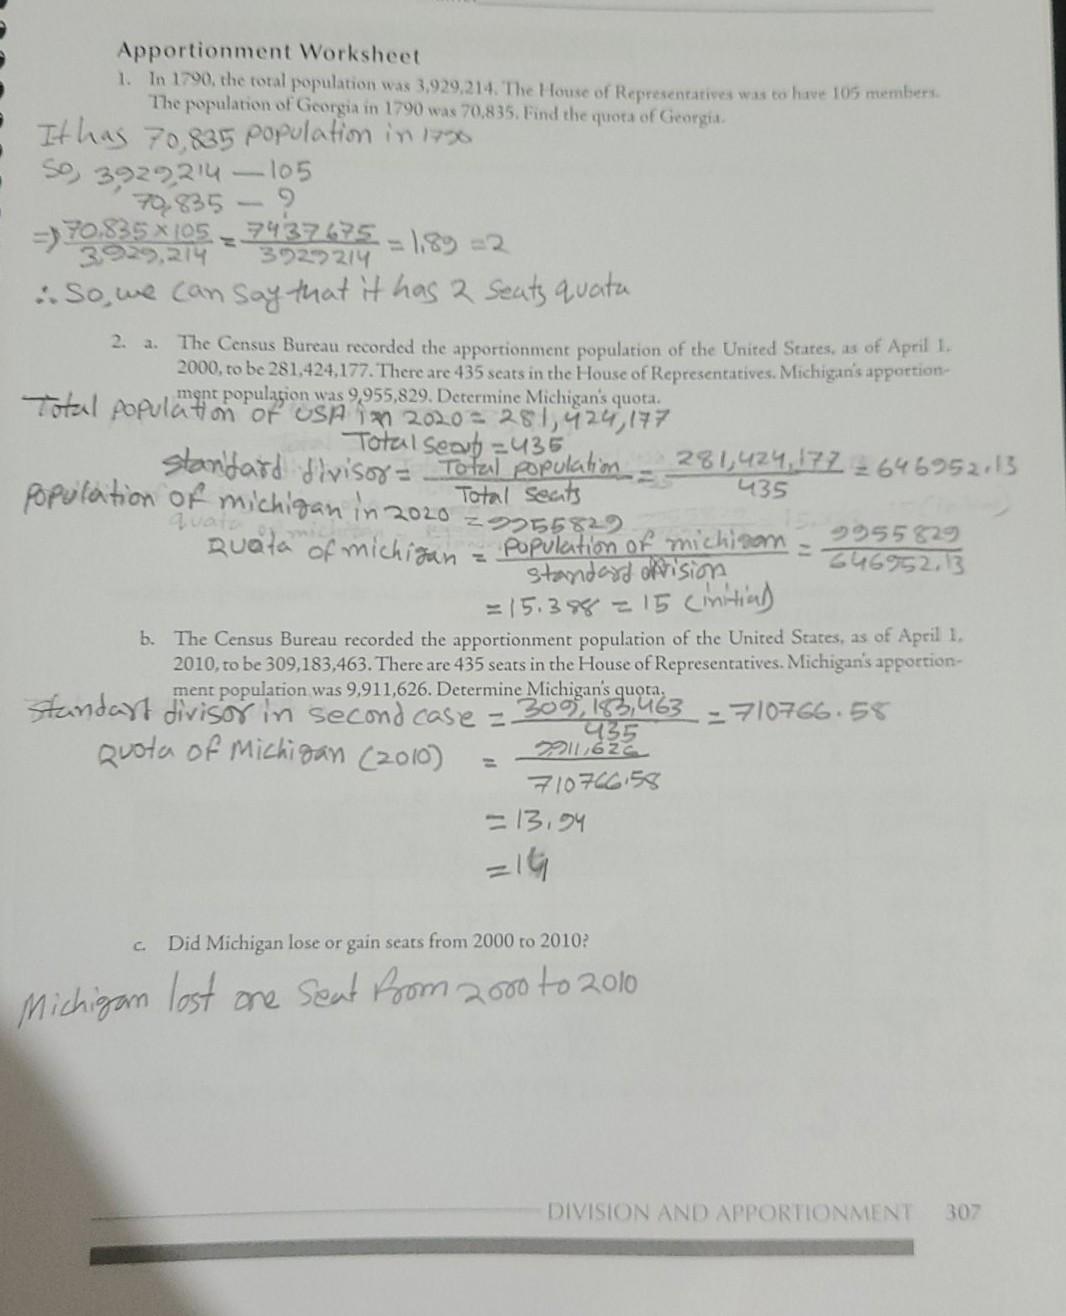 Apportionment Worksheet
1. In 1790, the total population was 3,929,214. The House of Representatives was to have 105 members.
The population of Georgia in 1790 was 70,835. Find the quota of Georgia.
It has 70,835 population in 1790
So, 3,929,214 — 105
70,835 — ?
=> 70,835 × 105 / 3,929,214 = 7437675 / 3929214 = 1.89 = 2
∴ So, we can say that it has 2 seats quata
2. a. The Census Bureau recorded the apportionment population of the United States, as of April 1,
2000, to be 281,424,177. There are 435 seats in the House of Representatives. Michigan's apportion-
ment population was 9,955,829. Determine Michigan's quota.
Total population of USA in 2020 = 281,424,177
Total seats = 435
standard divisor = Total population / Total seats = 281,424,177 / 435 = 646952.13
Population of michigan in 2020 = 9955829
Quata of michigan = Population of michigan / standard division = 9955829 / 646952.13
= 15.388 = 15 (initial)
b. The Census Bureau recorded the apportionment population of the United States, as of April 1,
2010, to be 309,183,463. There are 435 seats in the House of Representatives. Michigan's apportion-
ment population was 9,911,626. Determine Michigan's quota.
Standart divisor in second case = 309,183,463 / 435 = 710766.58
Quota of Michigan (2010) = 9911,626 / 710766.58
= 13.94
= 14
c. Did Michigan lose or gain seats from 2000 to 2010?
Michigan lost one Seat from 2000 to 2010
DIVISION AND APPORTIONMENT 307